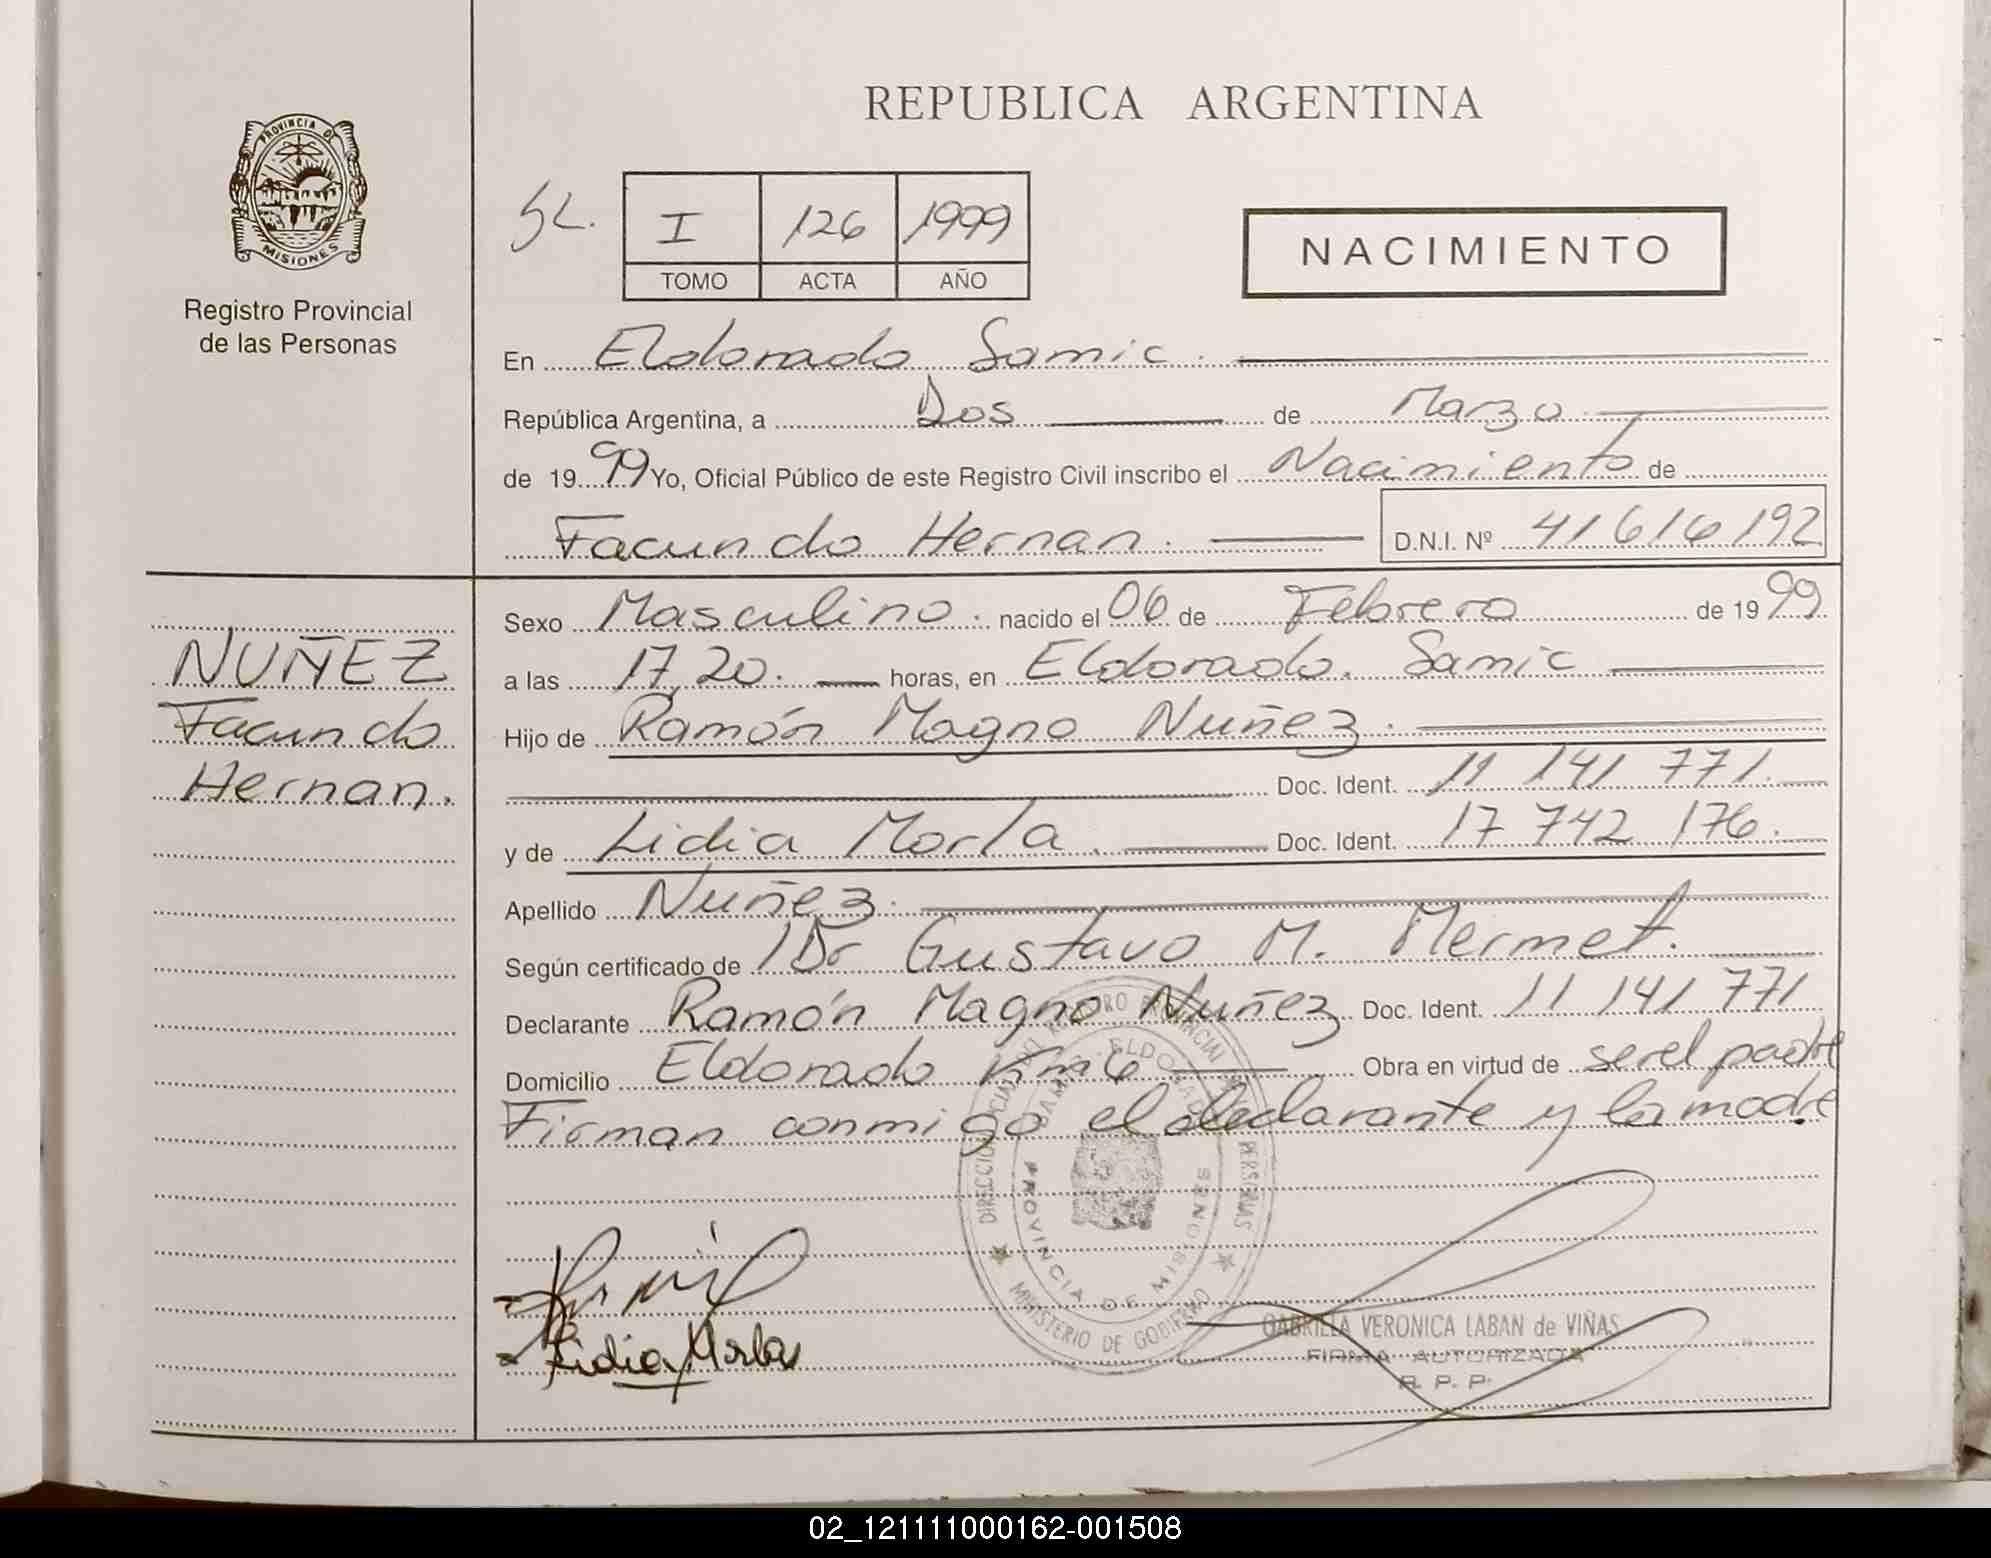 REPUBLICA ARGENTINA
PROVINCIA DE
MISIONES
Registro Provincial
de las Personas
I 126 1999
TOMO ACTA AÑO
NACIMIENTO
En Eldorado Samic.
República Argentina, a Dos de Marzo
de 1999 Yo, Oficial Público de este Registro Civil inscribo el Nacimiento de
Facundo Hernan. D.N.I. Nº 41616192
NUÑEZ
Facundo
Hernan.
Sexo Masculino. nacido el 06 de Febrero de 1999
a las 17,20. horas, en Eldorado. Samic
Hijo de Ramón Magno Nuñez.
Doc. Ident. 11 141 771.
y de Lidia Morla. Doc. Ident. 17 742 176.
Apellido Nuñez.
Según certificado de Dr Gustavo M. Mermet.
Declarante Ramón Magno Nuñez Doc. Ident. 11 141 771
Domicilio Eldorado Km 6 Obra en virtud de ser el padre
Firman conmigo el declarante y la madre.
PROVINCIA DE MISIONES
MINISTERIO DE GOBIERNO
Lidia Morla
GABRIELA VERONICA LABAN de VIÑAS
FIRMA AUTORIZADA
R. P. P.
02_121111000162-001508